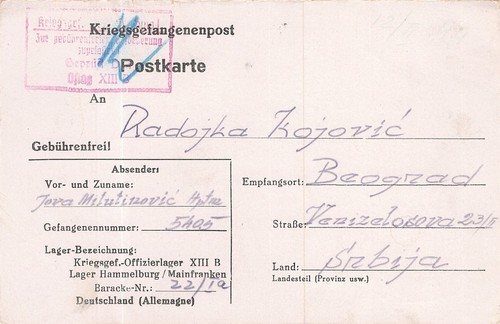 Kriegsgefangenenpost
Postkarte
Geprüft
Oflag XIII
An
Radojka Zojović
Gebührenfrei!
Absender:
Vor- und Zuname:
Jova Milutinović Hptm
Gefangenennummer: 5405
Lager-Bezeichnung:
Kriegsgef.-Offizierlager XIII B
Lager Hammelburg/Mainfranken
Baracke-Nr.: 22/Ia
Deutschland (Allemagne)
Empfangsort: Beograd
Straße: Venizelosova 23/II
Land: Srbija
Landesteil (Provinz usw.)